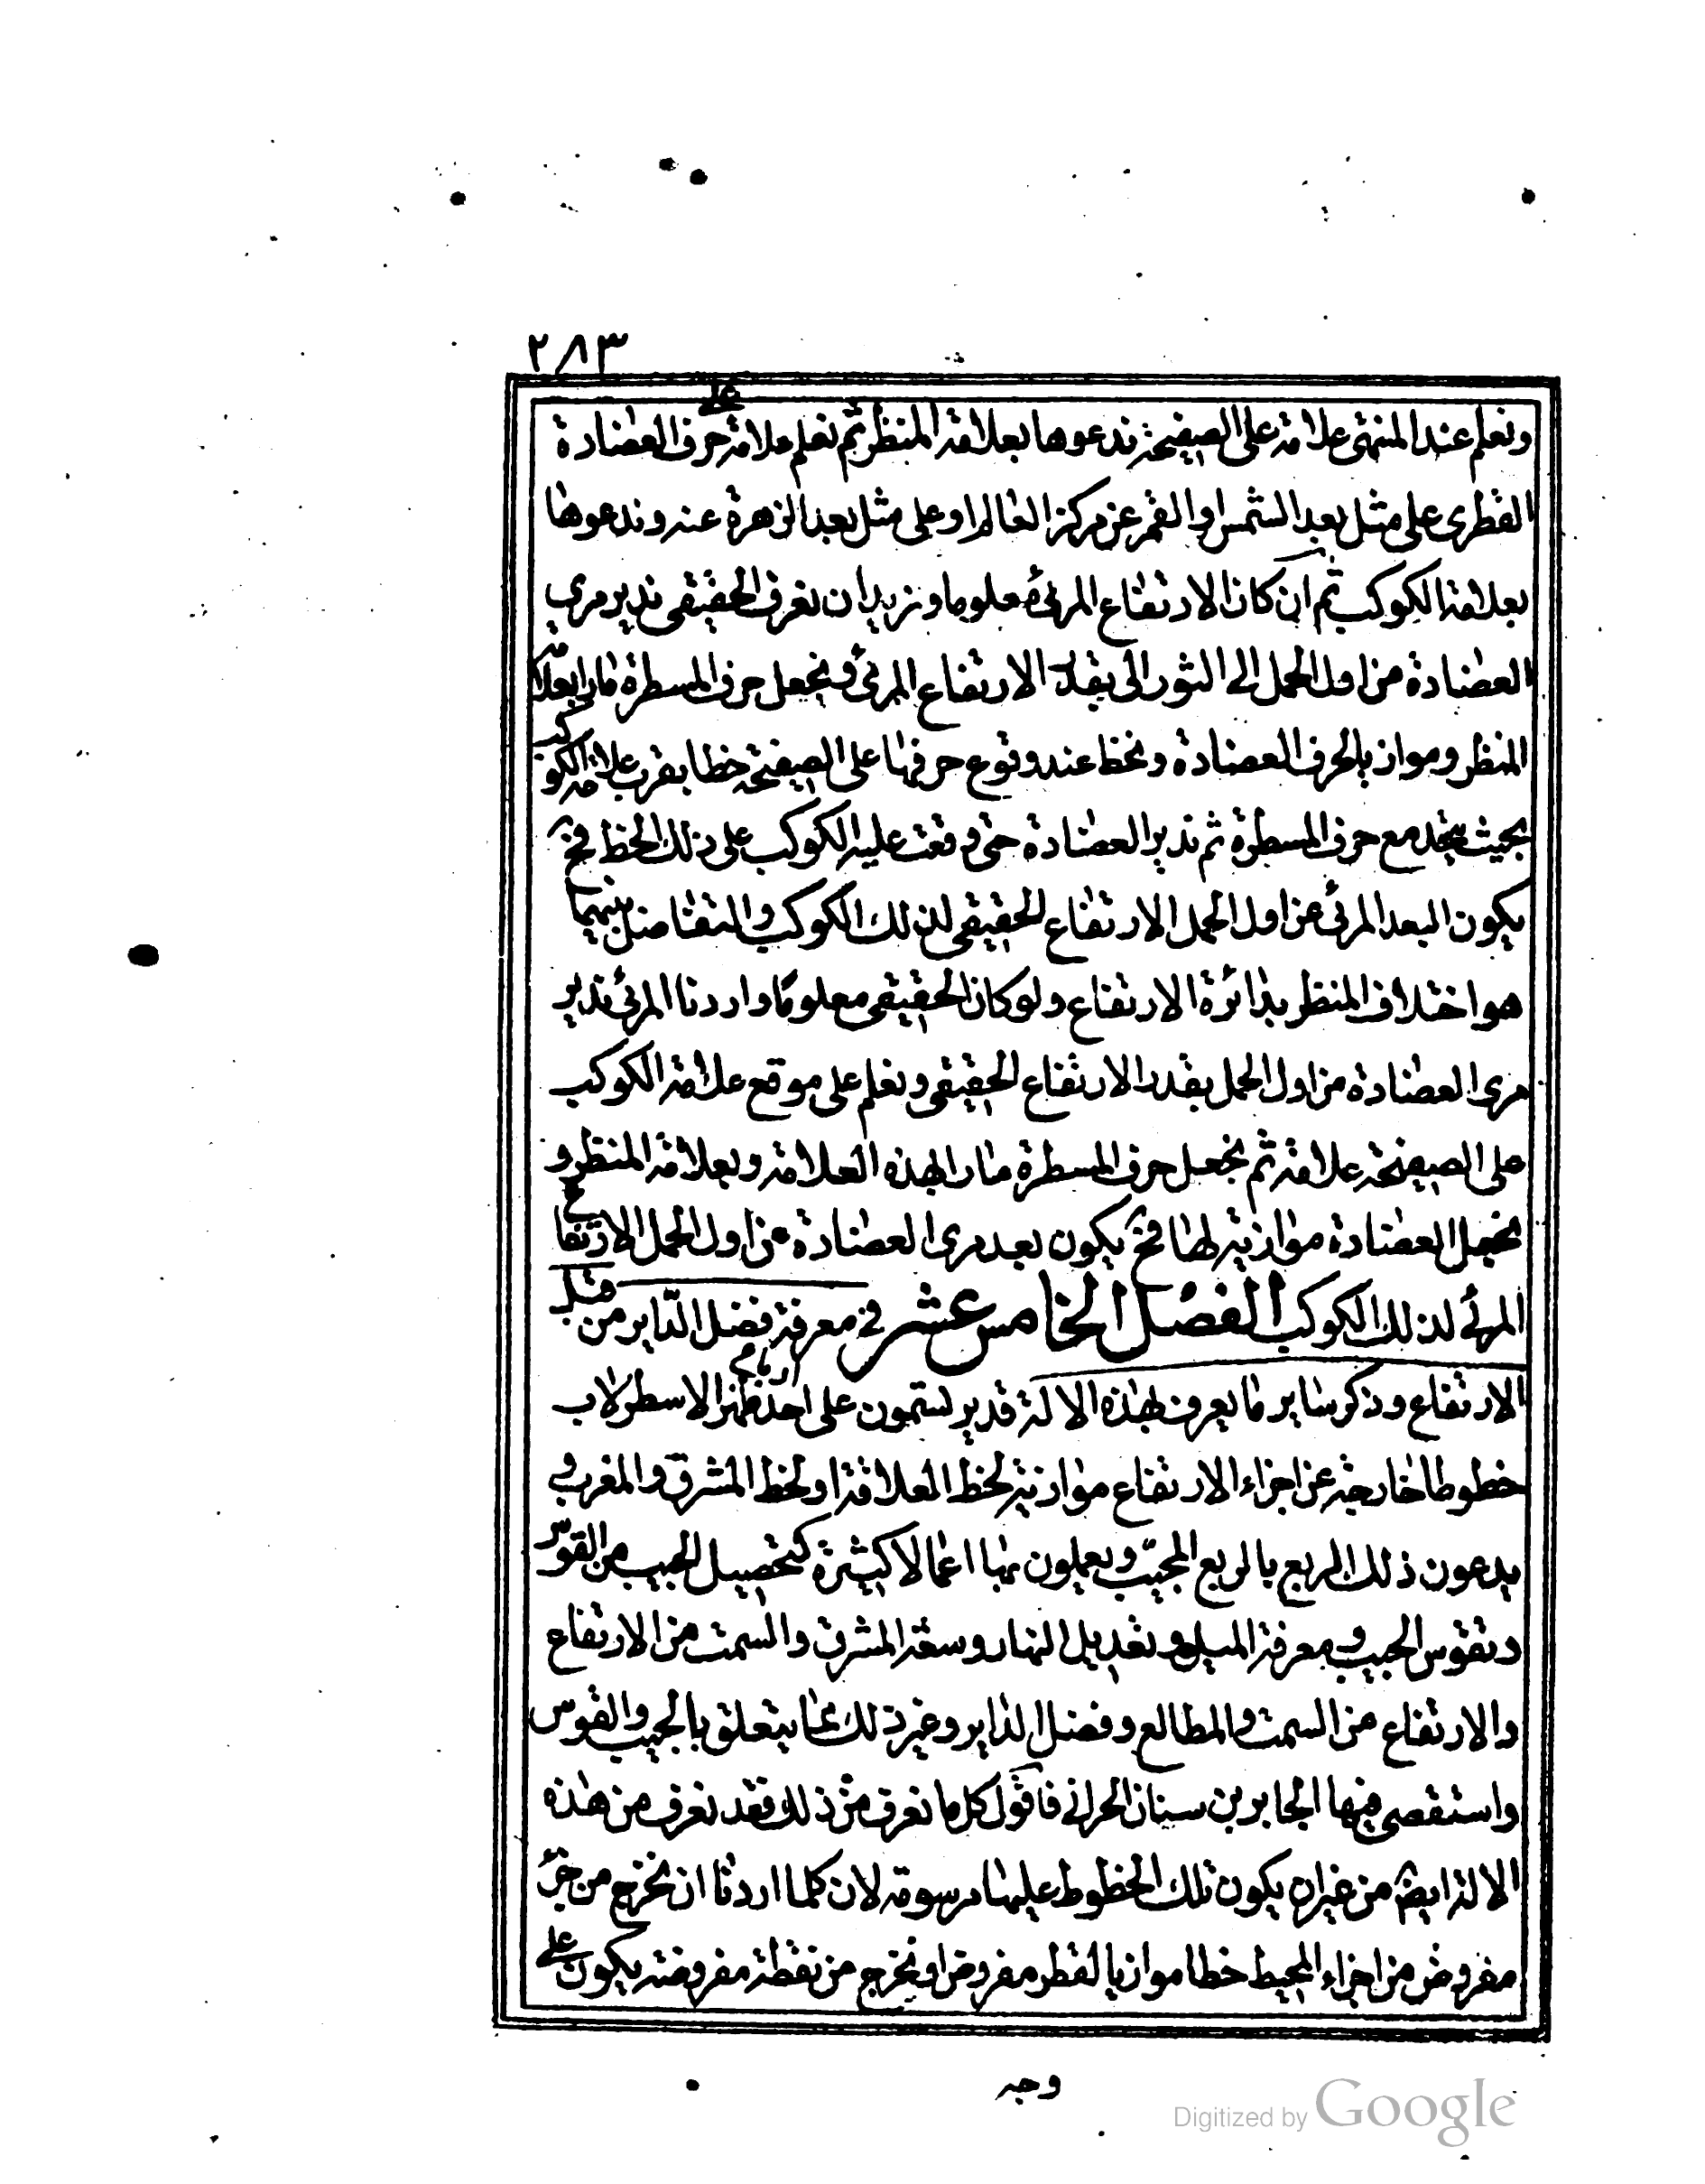 ٢٨٣
ونعلم عند المنتهى علامة على الصفيحة ندعوها بعلامة المنظر ثم نعلم علامة على حرف العضادة
القطرى على مثل بعد الشمس او القمر عن مركز العالم او على مثل بعد الزهرة عنه وندعوها
بعلامة الكوكب ثم ان كان الارتفاع المرئى معلوما ونريد ان نعرف الحقيقى ندير مرى
العضادة من اول الحمل الى الثور الى بقدر الارتفاع المرئى ونجعل حرف المسطرة مارا بعلامة
المنظر وموازيا لحرف العضادة ونخط عند وقوع حرفها على الصفيحة خطا بقرب علامة الكوكب
بحيث يتحد مع حرف المسطرة ثم ندير العضادة حتى وقعت عليه الكوكب على ذلك الخط فح
يكون البعد المرئى من اول الحمل الارتفاع الحقيقى لذلك الكوكب والتفاضل بينهما
هو اختلاف المنظر بدائرة الارتفاع ولو كان الحقيقى معلوما واردنا المرئى ندير
مرى العضادة من اول الحمل بقدر الارتفاع الحقيقى ونعلم على موقع علامة الكوكب
على الصفيحة علامة ثم نجعل حرف المسطرة مارا بهذه العلامة وبعلامة المنظر و
نجعل العضادة موازية لها فح يكون بعد مرى العضادة من اول الحمل الارتفاع
المرئى لذلك الكوكب الفصل الخامس عشر فى معرفة فضل الداير من قبل
الارتفاع وذكر ساير ما يعرف بهذه الالة قد يرتسمون على احد ارباع ظهر الاسطرلاب
خطوطا خارجة عن اجزاء الارتفاع موازية لخط العلاقة او لخط المشرق والمغرب و
يدعون ذلك الربع بالربع المجيب ويعملون بها اعمالا كثيرة كتحصيل الجيب من القوس
وتقوس الجيب ومعرفة الميل وتعديل النهار وسعة المشرق والسمت من الارتفاع
والارتفاع من السمت والمطالع وفضل الداير وغير ذلك مما يتعلق بالجيب والقوس
واستقصى فيها الجابر بن سنان الحرانى فاقول كل ما نعرف من ذلك فقد نعرف من هذه
الالة ايضا من غير ان يكون تلك الخطوط عليها مرسومة لان كلما اردنا ان نخرج من جزء
مفروض من اجزاء المحيط خطا موازيا لقطر مفروض او نخرج من نقطة مفروضة يكون على
وجه
Digitized by Google